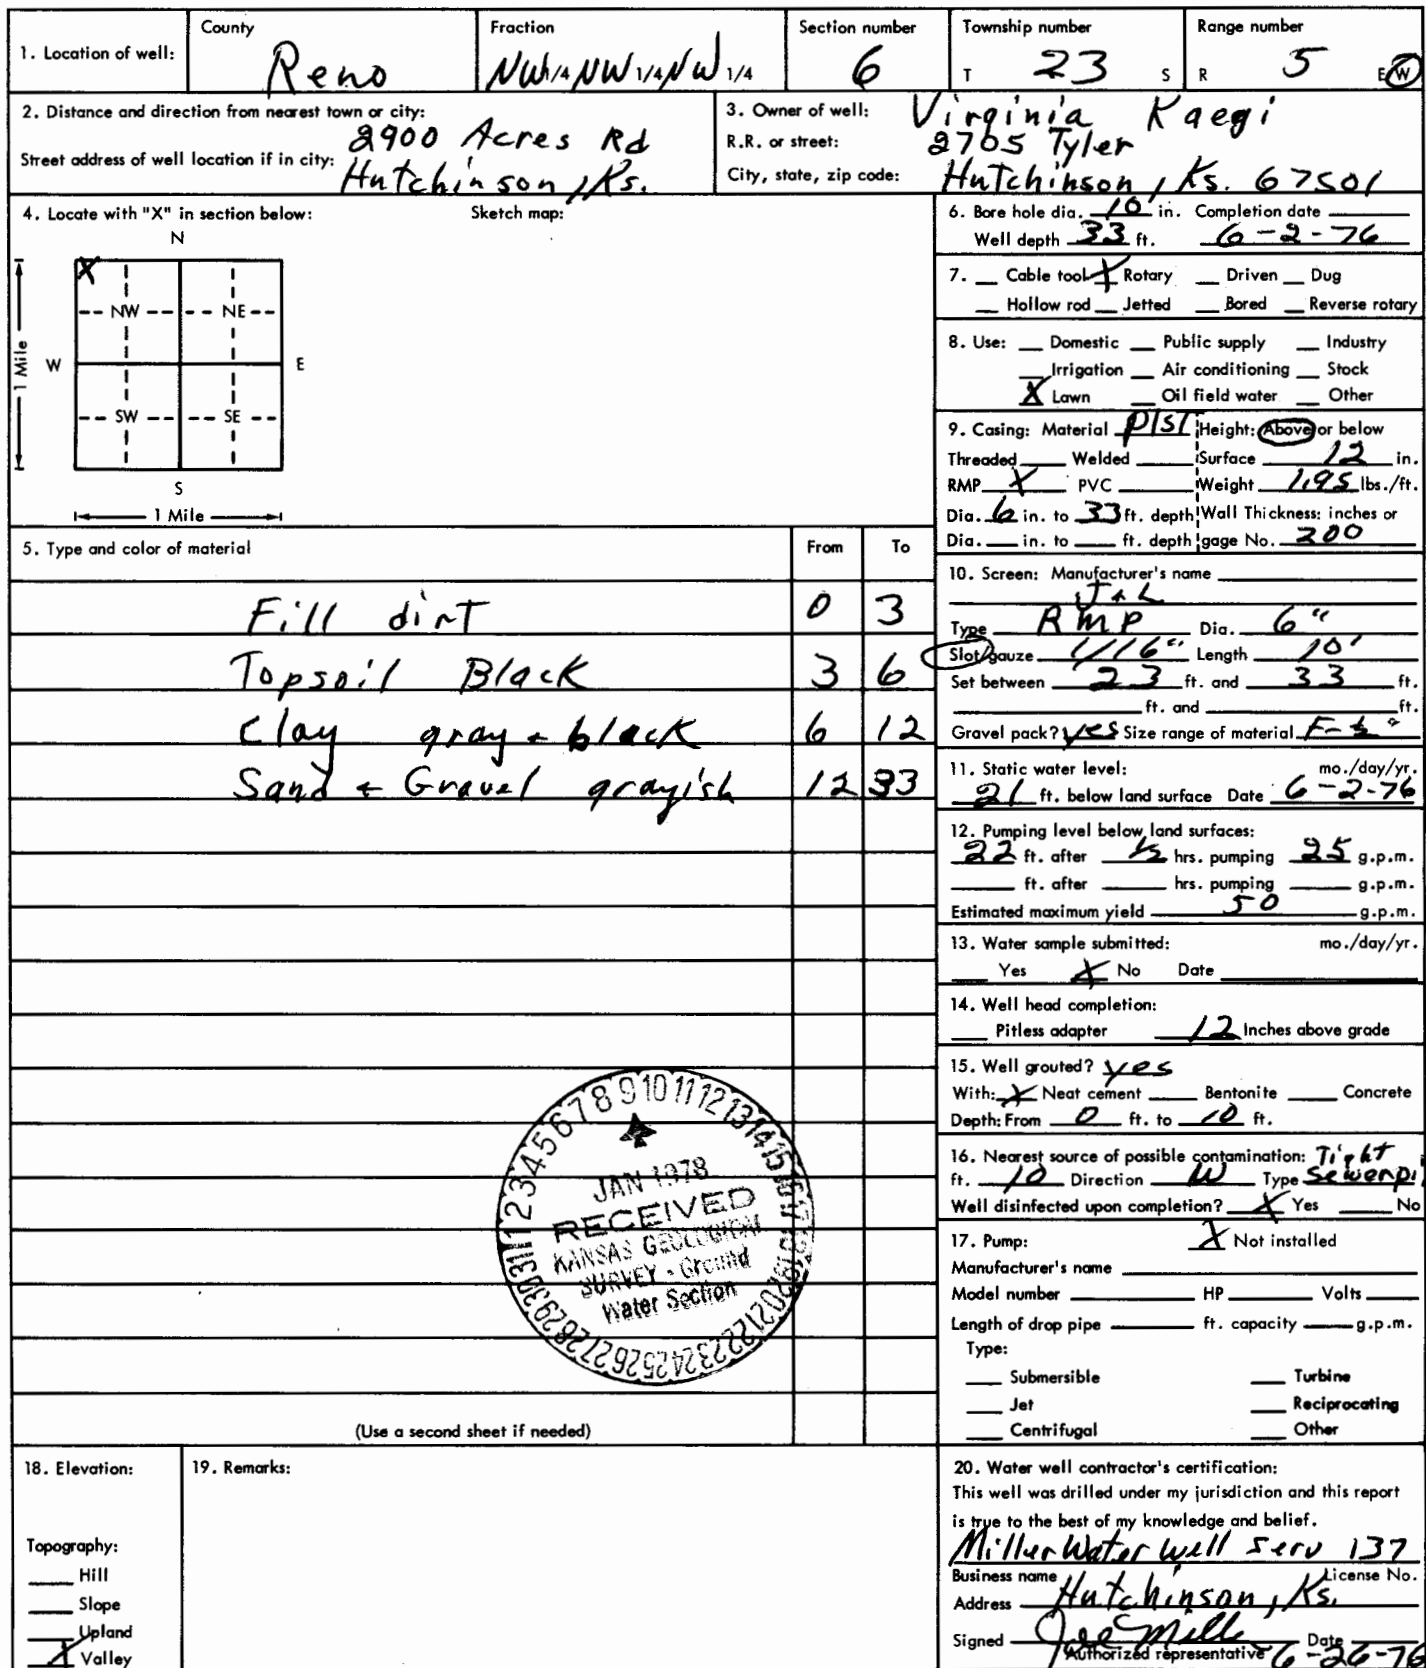 County Fraction Section number Township number Range number
1. Location of well: Reno NW1/4 NW 1/4 NW 1/4 6 T 23 S R 5 E W
2. Distance and direction from nearest town or city:
2900 Acres Rd
Street address of well location if in city: Hutchinson, Ks.
3. Owner of well: Virginia Kaegi
R.R. or street: 2705 Tyler
City, state, zip code: Hutchinson, Ks. 67501
4. Locate with "X" in section below: Sketch map:
N
X
NW NE
W E
1 Mile
SW SE
S
1 Mile
5. Type and color of material From To
Fill dirt 0 3
Topsoil Black 3 6
Clay gray + black 6 12
Sand + Gravel grayish 12 33
(Use a second sheet if needed)
6. Bore hole dia. 10 in. Completion date
Well depth 33 ft. 6-2-76
7. Cable tool X Rotary Driven Dug
Hollow rod Jetted Bored Reverse rotary
8. Use: Domestic Public supply Industry
Irrigation Air conditioning Stock
X Lawn Oil field water Other
9. Casing: Material plst Height: Above or below
Threaded Welded Surface 12 in.
RMP X PVC Weight 1.95 lbs./ft.
Dia. 6 in. to 33 ft. depth Wall Thickness: inches or
Dia. in. to ft. depth gage No. 200
10. Screen: Manufacturer's name
J + L
Type RMP Dia. 6"
Slot/gauze 1/16" Length 10'
Set between 23 ft. and 33 ft.
ft. and ft.
Gravel pack? yes Size range of material
11. Static water level: mo./day/yr.
21 ft. below land surface Date 6-2-76
12. Pumping level below land surfaces:
22 ft. after 1/2 hrs. pumping 25 g.p.m.
ft. after hrs. pumping g.p.m.
Estimated maximum yield 50 g.p.m.
13. Water sample submitted: mo./day/yr.
Yes X No Date
14. Well head completion:
Pitless adapter 12 Inches above grade
15. Well grouted? yes
With: X Neat cement Bentonite Concrete
Depth: From 0 ft. to 10 ft.
16. Nearest source of possible contamination: Tight
ft. 10 Direction W Type Sewerpi
Well disinfected upon completion? X Yes No
17. Pump: X Not installed
Manufacturer's name
Model number HP Volts
Length of drop pipe ft. capacity g.p.m.
Type:
Submersible Turbine
Jet Reciprocating
Centrifugal Other
1 2 3 4 5 6 7 8 9 10 11 12 13 14 15 16 17 18 19 20 21 22 23 24 25 26 27 28 29 30 31
JAN 1978
RECEIVED
KANSAS GEOLOGICAL
SURVEY - Ground
Water Section
18. Elevation:
Topography:
Hill
Slope
Upland
X Valley
19. Remarks:
20. Water well contractor's certification:
This well was drilled under my jurisdiction and this report
is true to the best of my knowledge and belief.
Miller Water Well Serv 137
Business name License No.
Address Hutchinson, Ks.
Signed Joe Mille Date
Authorized representative 6-26-76